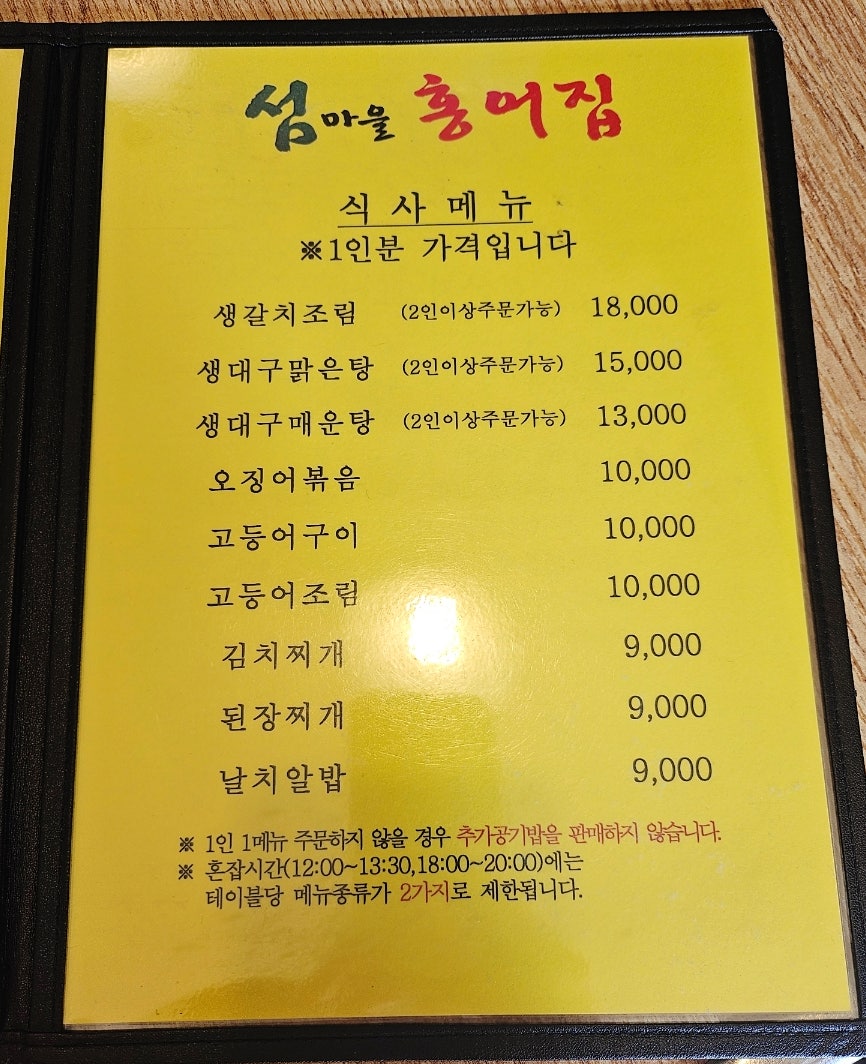 섬마을 홍어집
식사메뉴
※1인분 가격입니다
생갈치조림 (2인이상주문가능) 18,000
생대구맑은탕 (2인이상주문가능) 15,000
생대구매운탕 (2인이상주문가능) 13,000
오징어볶음 10,000
고등어구이 10,000
고등어조림 10,000
김치찌개 9,000
된장찌개 9,000
날치알밥 9,000
※ 1인 1메뉴 주문하지 않을 경우 추가공기밥을 판매하지 않습니다.
※ 혼잡시간(12:00~13:30,18:00~20:00)에는
테이블당 메뉴종류가 2가지로 제한됩니다.